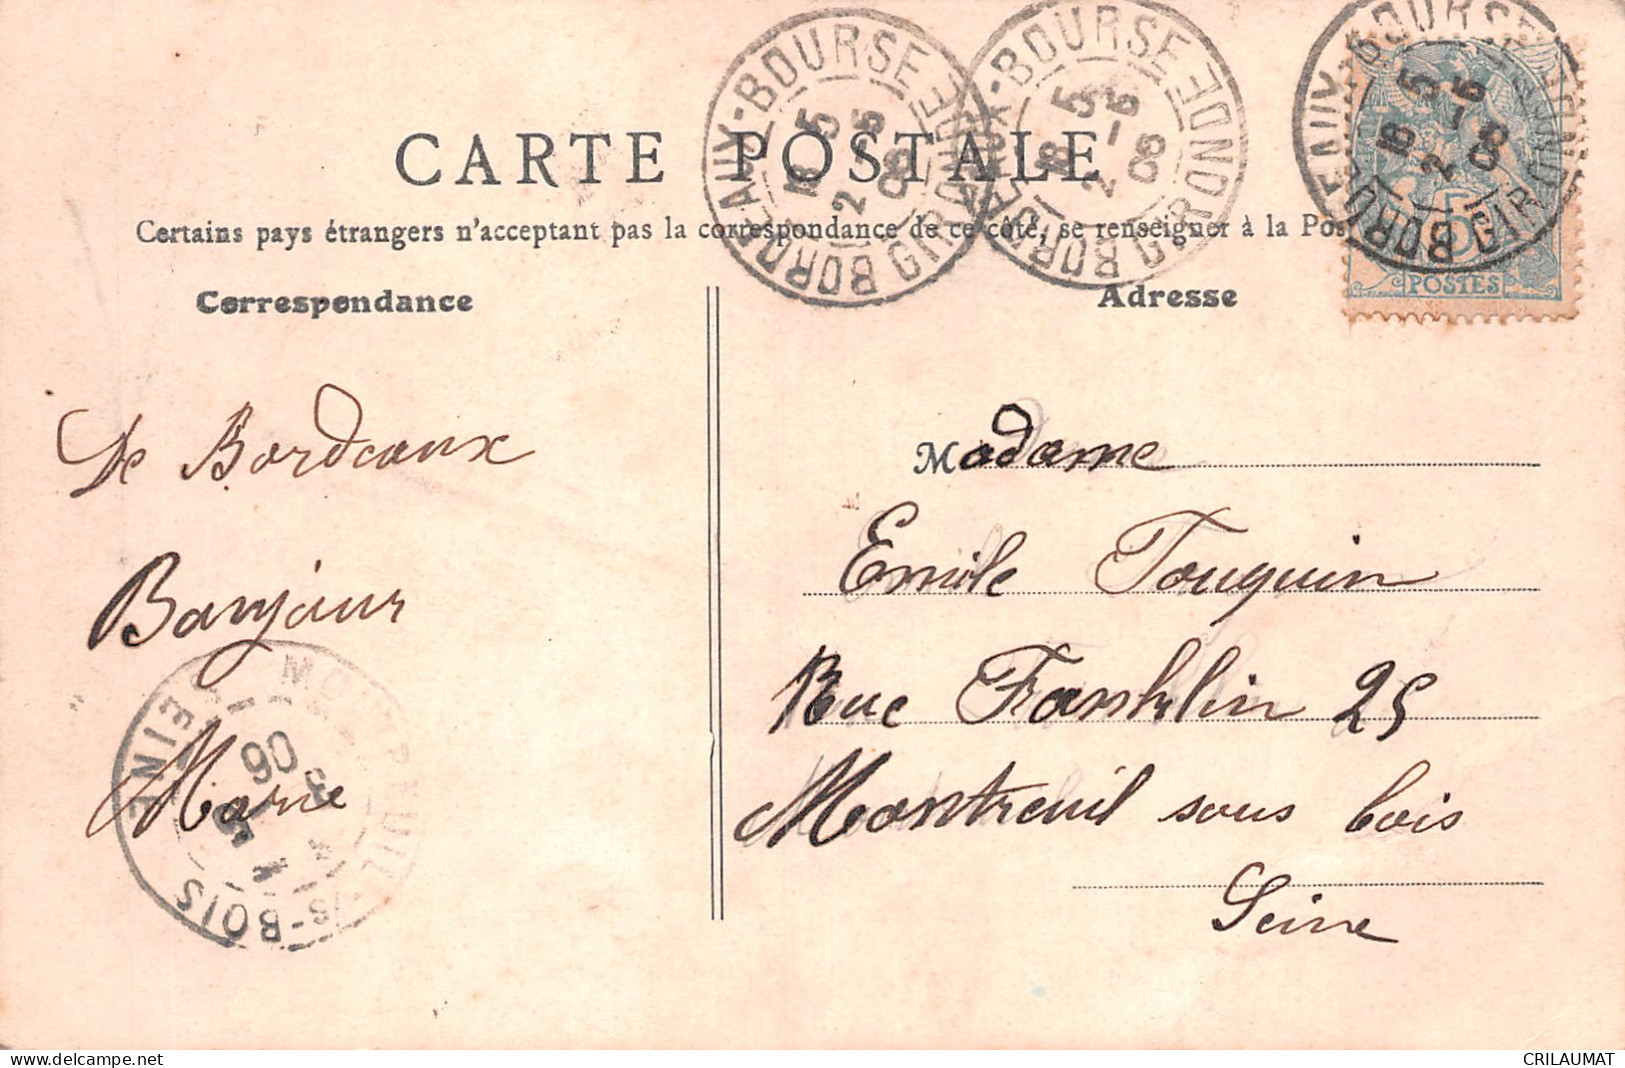 CARTE POSTALE
Certains pays étrangers n'acceptant pas la correspondance de ce côté, se renseigner à la Pos
Correspondance
Adresse
De Bordeaux
Bonjour
Marie
Madame
Emile Touquin
Rue Franklin 25
Montreuil sous bois
Seine
BORDEAUX-BOURSE GIRONDE
18 5
2-5
06
BORDEAUX-BOURSE GIRONDE
18 5
2-5
06
BORDEAUX-BOURSE GIRONDE
18 5
2-5
06
5
POSTES
MONTREUIL-S-BOIS
SEINE
06
CRILAUMAT